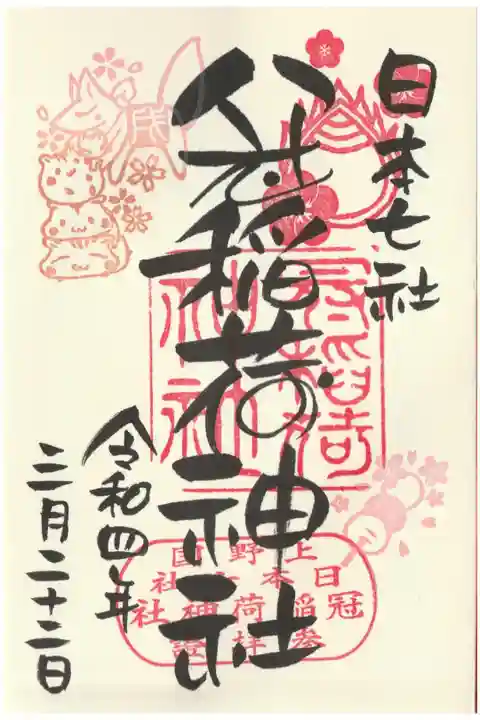 日本七社
稲荷神社
令和四年
三月二十二日
冠稲荷
神社
上野國
日本七社
冠稲荷神社
参拝證